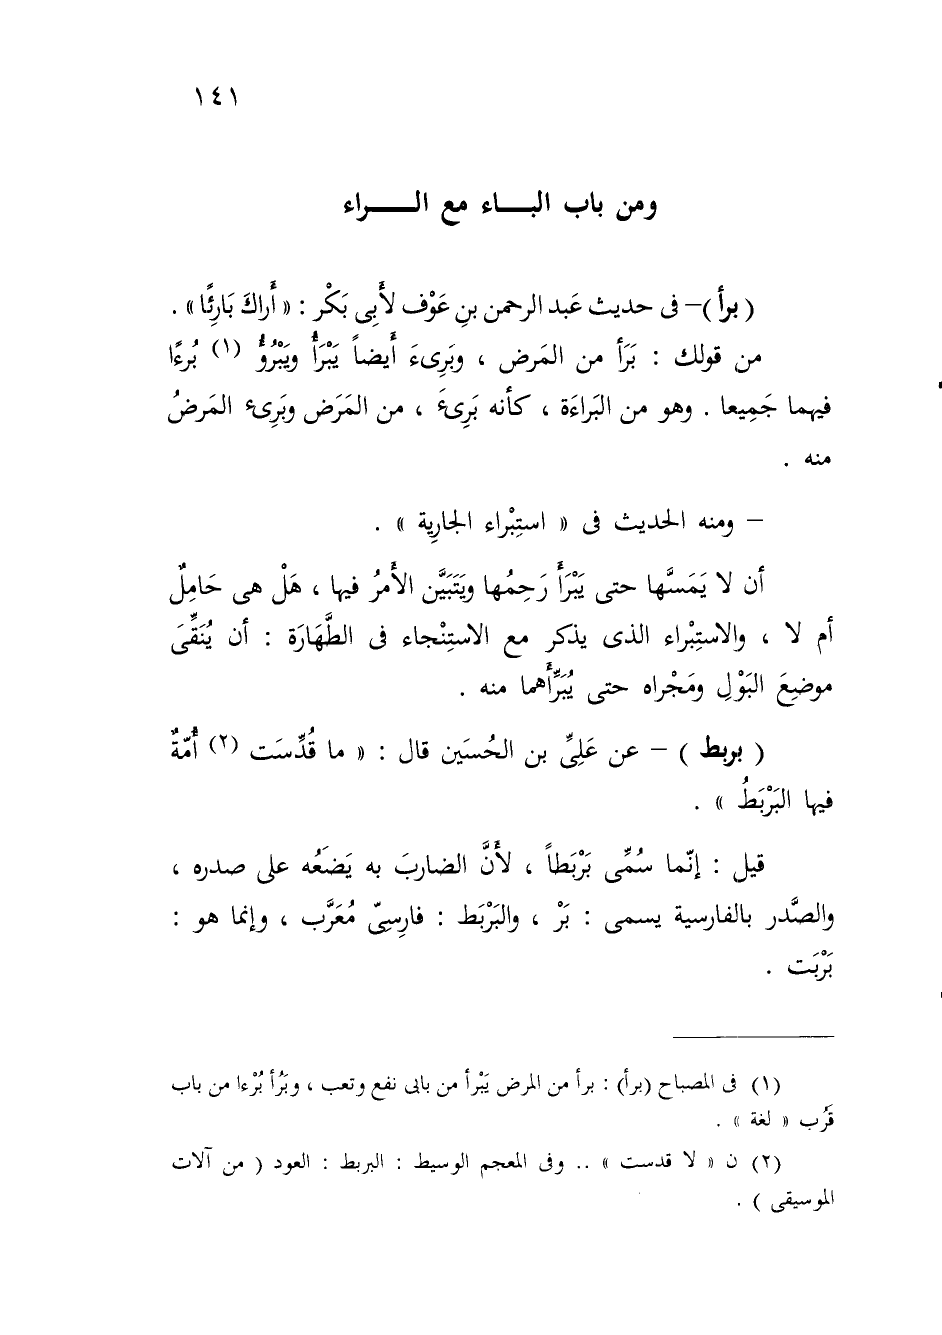 ١٤١
ومن باب البـــاء مع الـــــراء
( برأ )– فى حديث عَبد الرحمن بنِ عَوْف لأَبِى بَكْر : « أَراكَ بَارِئًا » .
من قولك : بَرَأ من المَرض ، وبَرِىءَ أَيضاً يَبْرَأُ ويَبْرُؤُ (١) بُرءًا
فيهما جَمِيعا . وهو من البَراءَة ، كأنه بَرِىءَ ، من المَرَض وبَرِىء المَرضُ
منه .
– ومنه الحديث فى « استِبْراء الجارِية » .
أن لا يَمَسَّها حتى يَبْرَأَ رَحِمُها ويَتَبَيَّن الأَمرُ فيها ، هَلْ هى حَامِلٌ
أم لا ، والاستِبْراء الذى يذكر مع الاستِنْجاء فى الطَّهَارَة : أن يُنَقِّىَ
موضِعَ البَوْلِ ومَجْراه حتى يُبَرِّأَهما منه .
( بربط ) – عن عَلِىِّ بن الحُسَين قال : « ما قُدِّسَت (٢) أُمَّةٌ
فيها البَرْبَطُ » .
قيل : إنّما سُمِّى بَرْبَطاً ، لأَنَّ الضاربَ به يَضَعُه على صدره ،
والصَّدر بالفارسية يسمى : بَرْ ، والبَرْبَط : فارِسِىّ مُعَرَّب ، وإنما هو :
بَرْبَت .
(١) فى المصباح (برأ) : برأ من المرض يَبْرأ من بابى نفع وتعب ، وبَرُأ بُرْءا من باب
قَرُب « لغة » .
(٢) ن « لا قدست » .. وفى المعجم الوسيط : البربط : العود ( من آلات
الموسيقى ) .